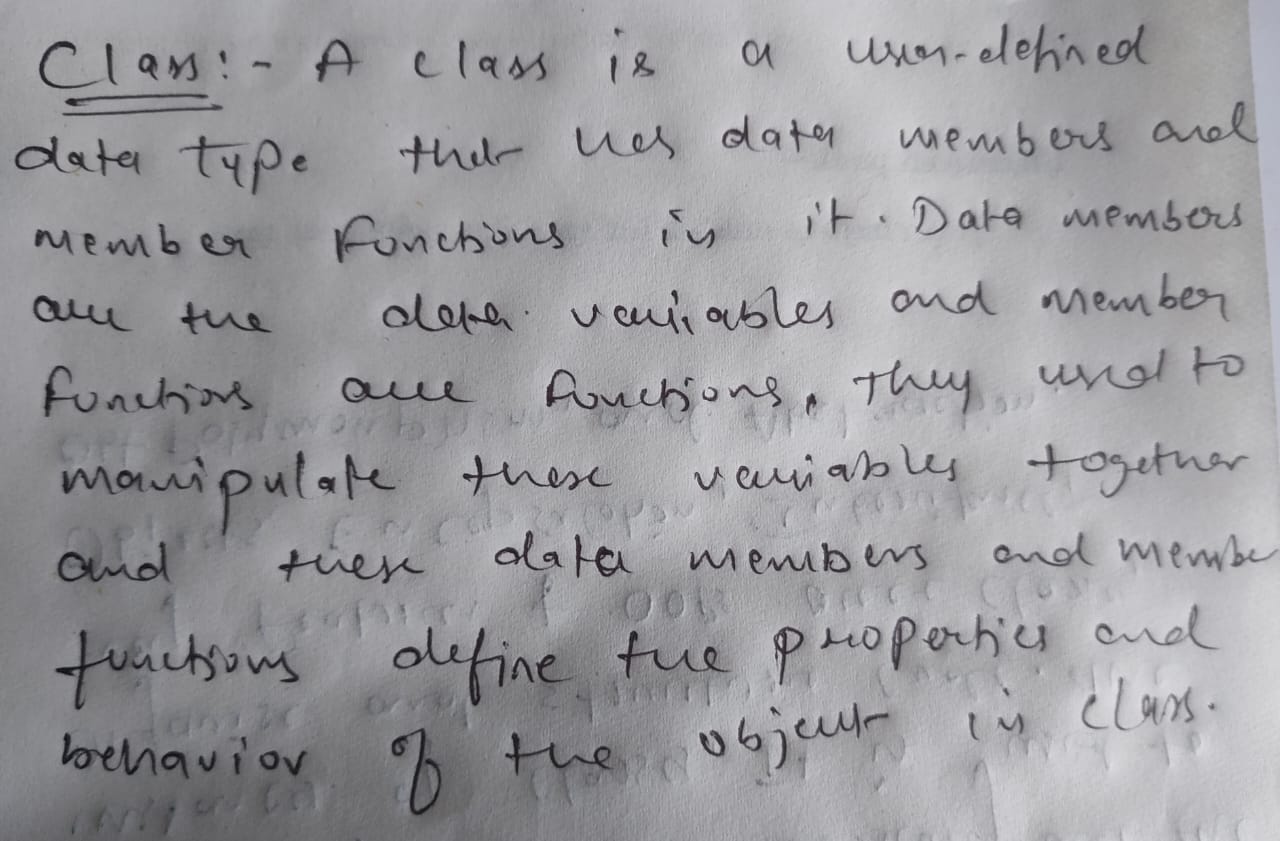 Class:- A class is a user-defined
data type that has data members and
member functions in it. Data members
are the data variables and member
functions are functions, they used to
manipulate these variables together
and these data members and membe
functions define the properties and
behavior of the object in class.